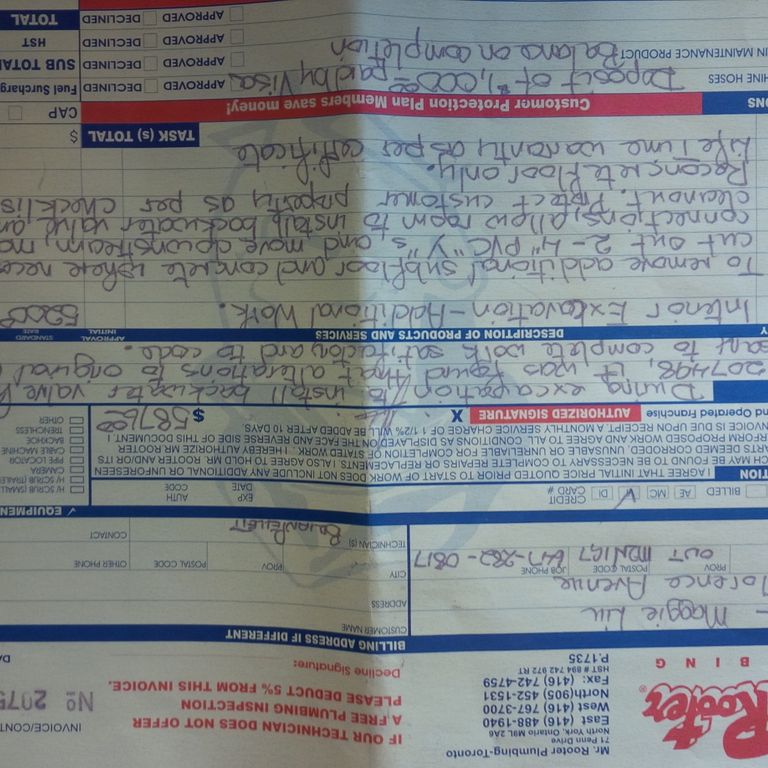 Rooter
BING
Mr. Rooter Plumbing-Toronto
71 Penn Drive
North York, Ontario, M9L 2A6
East (416) 488-1940
West (416) 767-3700
North(905) 452-1531
Fax: (416) 742-4759
HST # 894 742 972 RT
P.1735
IF OUR TECHNICIAN DOES NOT OFFER
A FREE PLUMBING INSPECTION
PLEASE DEDUCT 5% FROM THIS INVOICE.
Decline Signature:
INVOICE/CONT
No 2075
DA
BILLING ADDRESS IF DIFFERENT
Maggie Liu
CUSTOMER NAME
lorence Avenue
ADDRESS
CITY
PROV
POSTAL CODE
JOB PHONE
OUT M2N1G7 647-282-0817
PROV
POSTAL CODE
OTHER PHONE
TECHNICIAN (S)
CONTACT
BILLED AE MC V DI CREDIT CARD #
EXP DATE
AUTH CODE
✓ EQUIPMEN
H/ SCRUB (SMALL)
H/ SCRUB (TRAILER)
CAMERA
PIPE LOCATOR
CABLE MACHINE
BACKHOE
TRENCHLESS
OTHER
TION I AGREE THAT INITIAL PRICE QUOTED PRIOR TO START OF WORK DOES NOT INCLUDE ANY ADDITIONAL OR UNFORESEEN
CH MAY BE FOUND TO BE NECESSARY TO COMPLETE REPAIRS OR REPLACEMENTS. I ALSO AGREE TO HOLD MR. ROOTER AND/OR ITS
ARTS DEEMED CORRODED, UNUSABLE OR UNRELIABLE FOR COMPLETION OF STATED WORK. I HEREBY AUTHORIZE MR. ROOTER
RFORM PROPOSED WORK AND AGREE TO ALL CONDITIONS AS DISPLAYED ON THE FACE AND REVERSE SIDE OF THIS DOCUMENT. I
INVOICE IS DUE UPON RECEIPT. A MONTHLY SERVICE CHARGE OF 1 1/2% WILL BE ADDED AFTER 10 DAYS.
nd Operated Franchise
AUTHORIZED SIGNATURE X
$ 5876.00
During excavation to install backwater valve
207498, it was found that alterations to original
to complete work satisfactory to code.
Y DESCRIPTION OF PRODUCTS AND SERVICES APPROVAL INITIAL STANDARD RATE
Interior Excavation - Additional Work. 5200.00
To remove additional subfloor and concrete where nece
cut out 2-4" PVC "Y"s and move downstream, ma
connections, allow room to install backwater valve an
cleanout. Protect customer property as per checklis
Reconcrete floor only.
Life Time warranty as per certificate
TASK (s) TOTAL $
ONS Customer Protection Plan Members save money!
CAP
HINE HOSES
Deposit of $1,000.00 paid by Visa
Balance on completion
IN MAINTENANCE PRODUCT
APPROVED DECLINED Fuel Surcharg
APPROVED DECLINED SUB TOTAL
APPROVED DECLINED HST
APPROVED DECLINED TOTAL